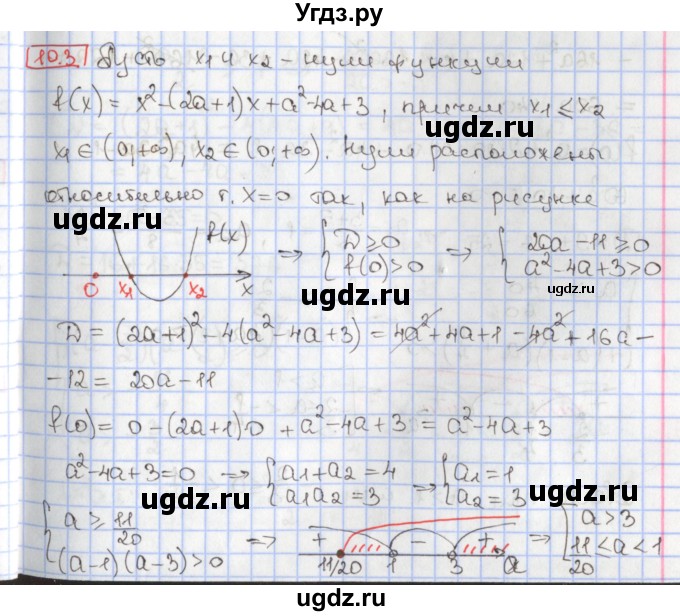 Угдз.ру
10.3 Пусть x₁ и x₂ - нули функции
f(x) = x² - (2a+1)x + a² - 4a + 3, причем x₁ ≤ x₂
ugdz.ru
x₁ ∈ (0;+∞), x₂ ∈ (0;+∞). Нули расположены
ugdz.ru
относительно т. x=0 так, как на рисунке
ugdz.ru
f(x) => { D ≥ 0 => { 20a - 11 ≥ 0
f(0) > 0 a² - 4a + 3 > 0
0 x₁ x₂ x
ugdz.ru
D = (2a+1)² - 4(a² - 4a + 3) = 4a² + 4a + 1 - 4a² + 16a -
- 12 = 20a - 11
ugdz.ru
f(0) = 0 - (2a+1)·0 + a² - 4a + 3 = a² - 4a + 3
a² - 4a + 3 = 0 => { a₁ + a₂ = 4 => { a₁ = 1
a₁a₂ = 3 a₂ = 3
ugdz.ru
{ a ≥ 11/20 => + - + => [ a > 3
(a-1)(a-3) > 0 11/20 1 3 a 11/20 ≤ a < 1
ugdz.ru